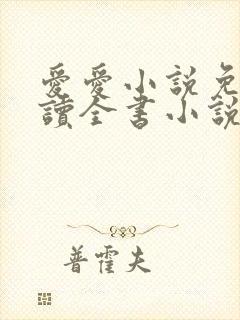 愛愛小說免
讀全書小說
普霍夫